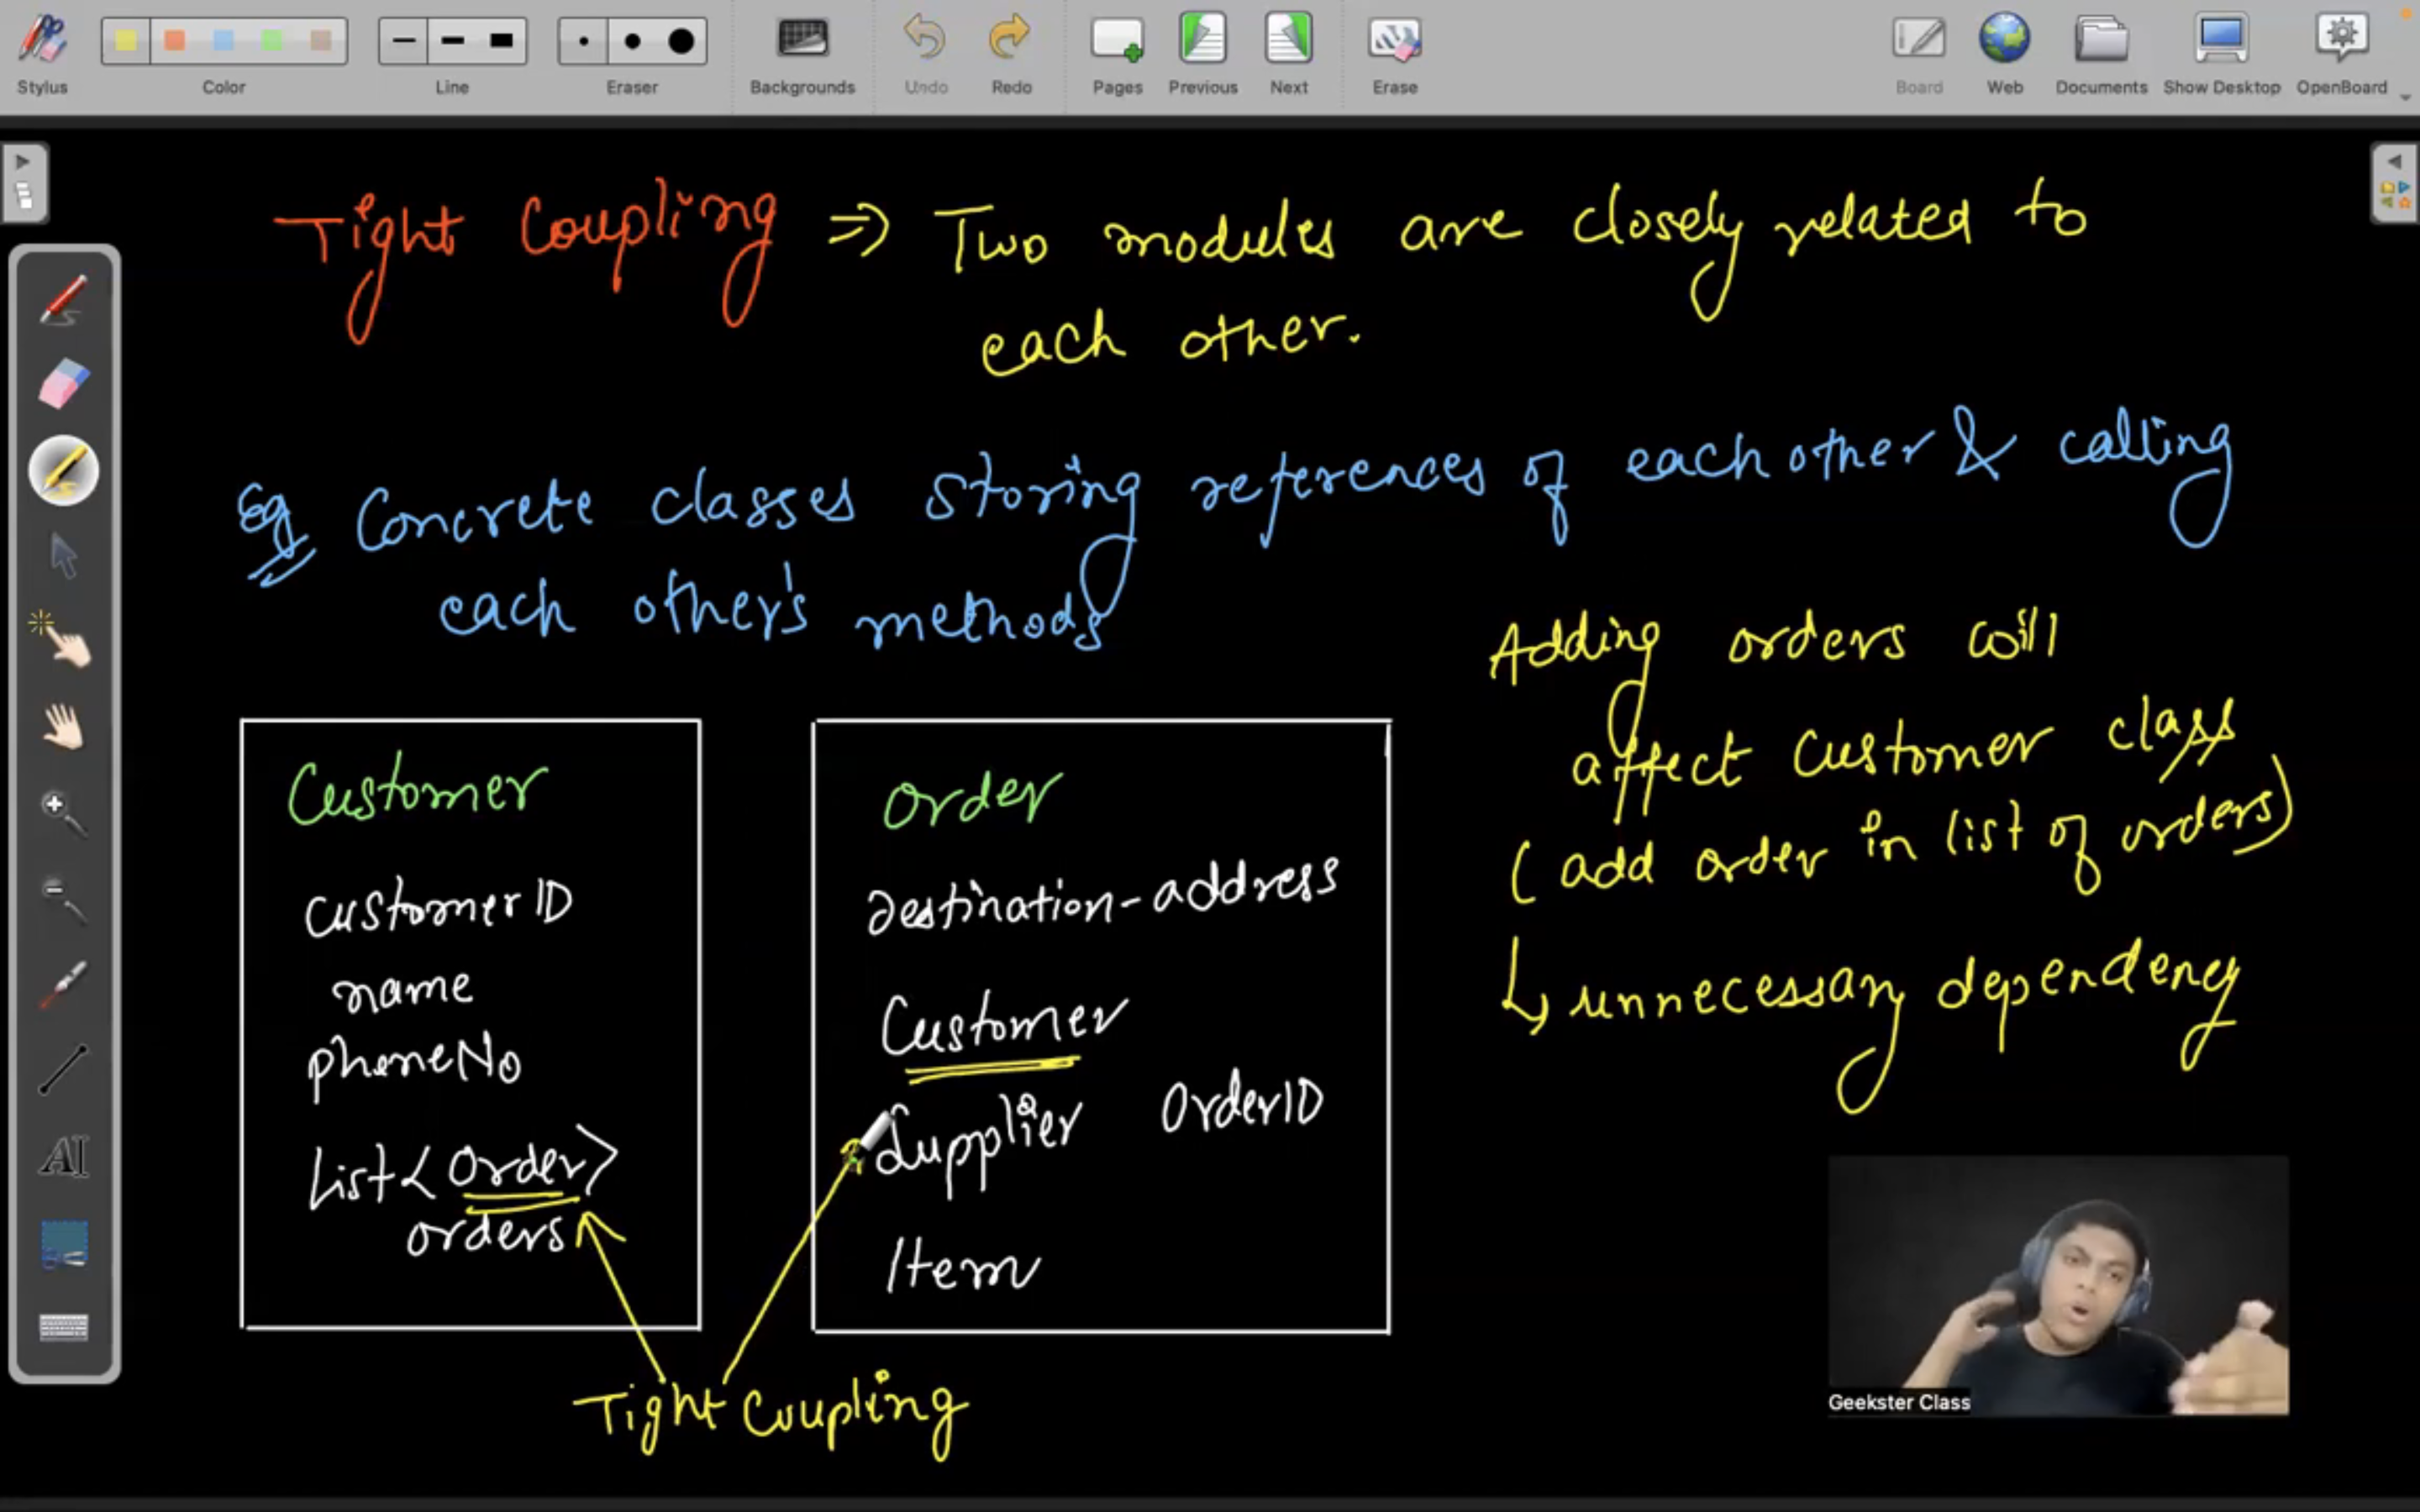 Stylus
Color
Line
Eraser
Backgrounds
Undo
Redo
Pages
Previous
Next
Erase
Board
Web
Documents
Show Desktop
OpenBoard
Tight Coupling ⇒ Two modules are closely related to
each other.
Eg Concrete classes storing references of each other & calling
each other's methods
Customer
customerID
name
phoneNo
List<Order>
orders
Order
Destination-address
Customer
Supplier
OrderID
Item
Tight Coupling
Adding orders will
affect Customer class
(add order in list of orders)
↳ unnecessary dependency
AI
Geekster Class